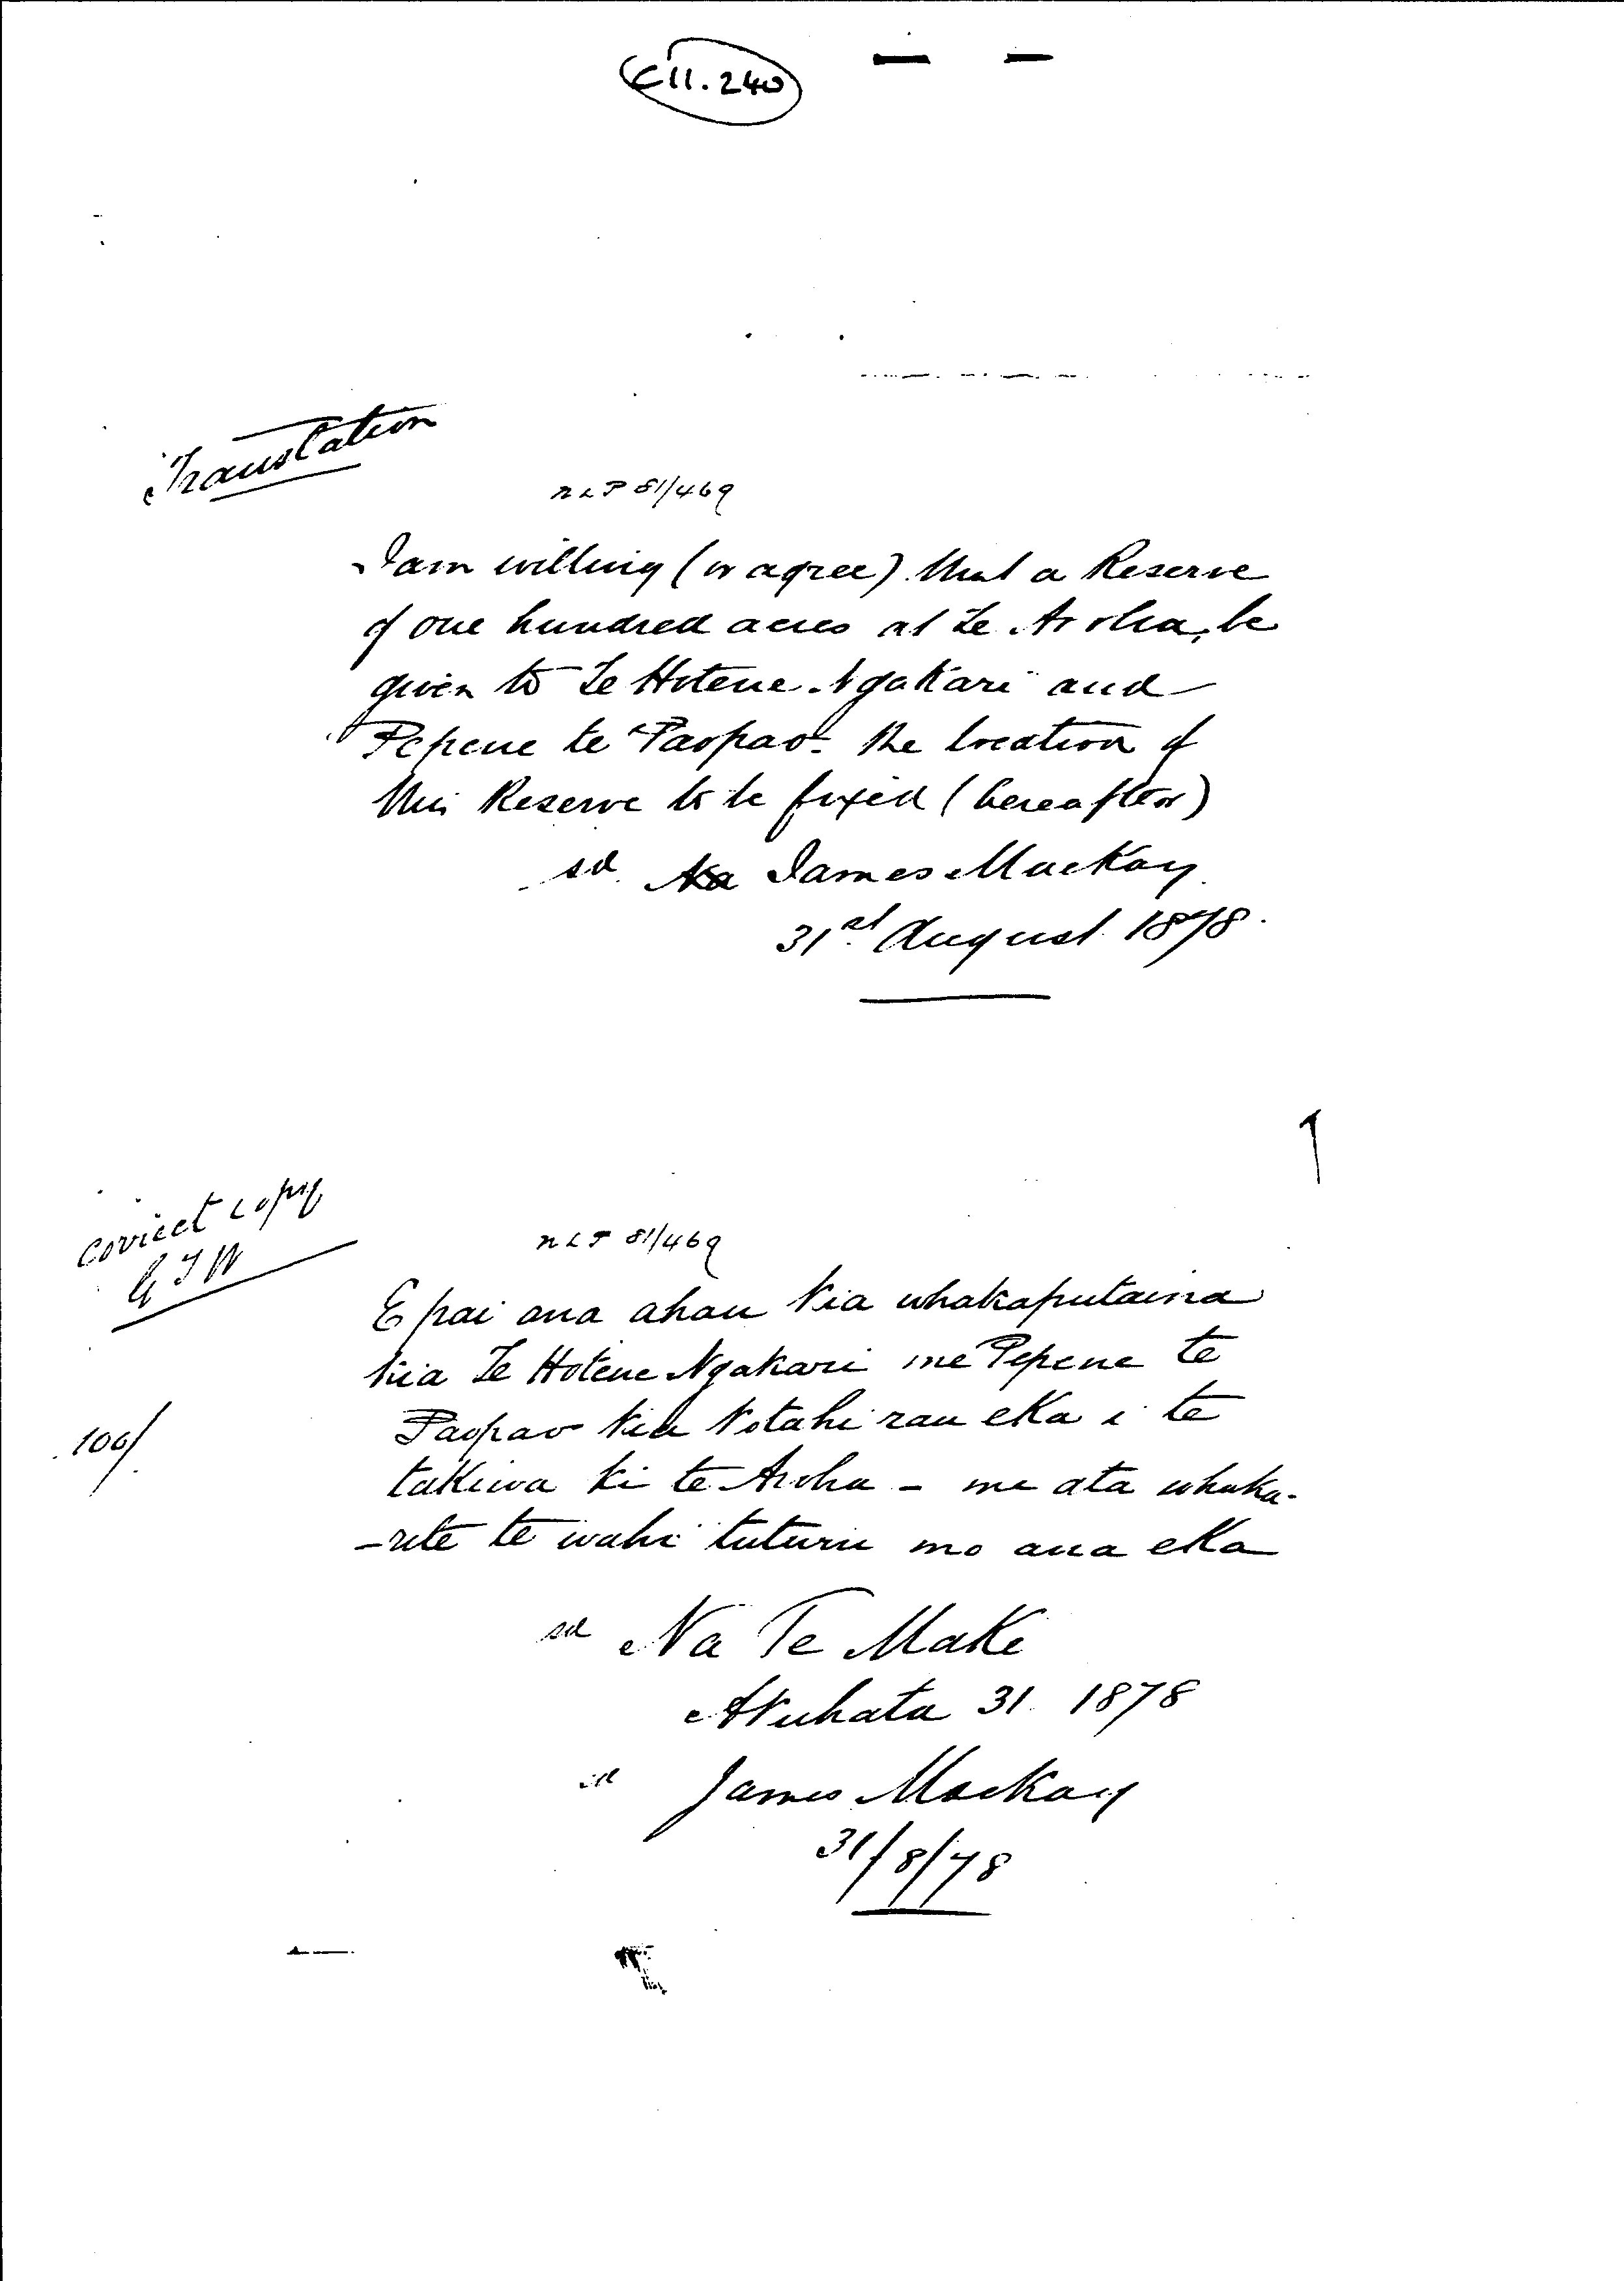 C11.240
Translation
NLP 81/469
I am willing (or agree) that a Reserve
of one hundred acres at Te Aroha, be
given to Te Hotene Ngakari and
Pepene te Paopao. The location of
this Reserve to be fixed (hereafter)
sd Na James Mackay
31st August 1878.
correct copy
100/
NLP 81/469
E pai ana ahau kia whakaputaina
kia Te Hotene Ngakari me Pepene te
Paopao kia kotahi rau eka i te
takiwa ki te Aroha - me ata whaka-
-rite te wahi tuturu mo aua eka
sd Na Te Make
Akuhata 31 1878
sd James Mackay
31/8/78